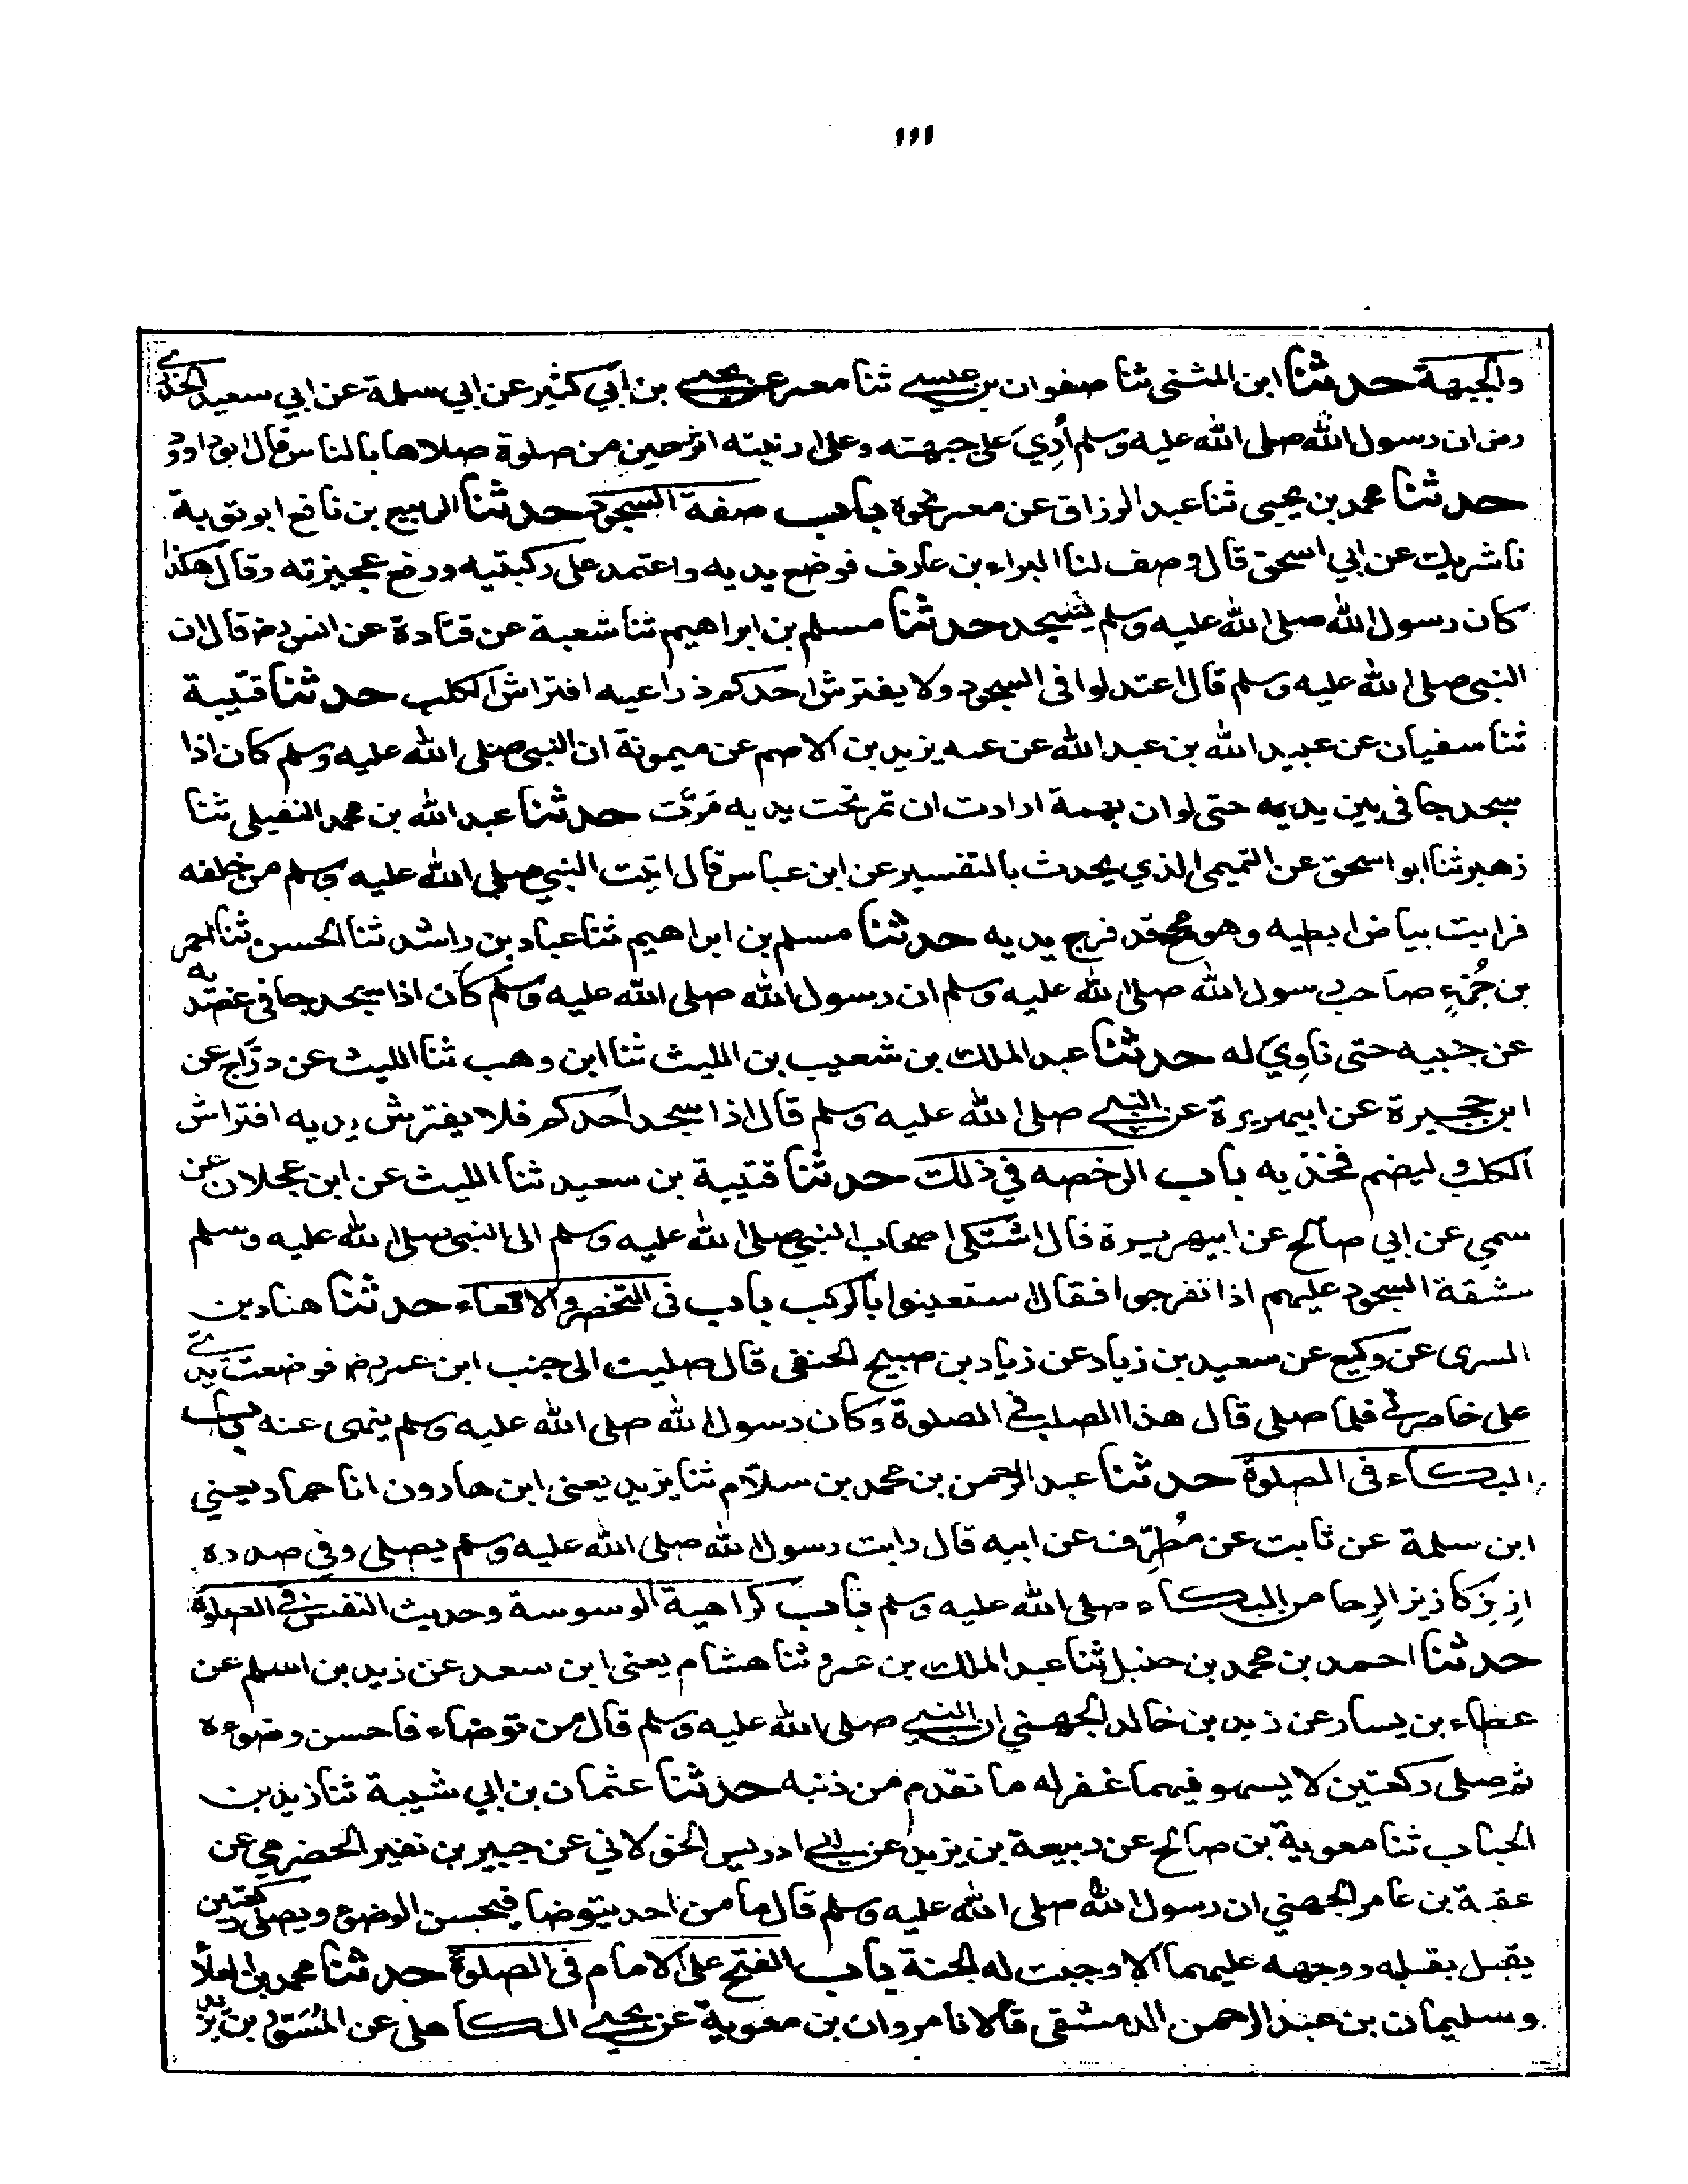 ١١١
والجبهة حدثنا ابن المثنى ثنا صفوان بن عيسى ثنا معمر عن يحيى بن ابي كثير عن ابي سلمة عن ابي سعيد الخدري
رض ان رسول الله صلى الله عليه وسلم أُدِيَ على جبهته وعلى ارنبته اثر طين من صلوة صلاها بالناس قال ابو داود
حدثنا محمد بن يحيى ثنا عبد الرزاق عن معمر نحوه باب صفة السجود حدثنا الربيع بن نافع ابو توبة
نا شريك عن ابي اسحق قال وصف لنا البراء بن عازب فوضع يديه واعتمد على ركبتيه ورفع عجيزته وقال هكذا
كان رسول الله صلى الله عليه وسلم يسجد حدثنا مسلم بن ابراهيم ثنا شعبة عن قتادة عن انس رض قال ان
النبي صلى الله عليه وسلم قال اعتدلوا في السجود ولا يفترش احدكم ذراعيه افتراش الكلب حدثنا قتيبة
ثنا سفيان عن عبيد الله بن عبد الله عن عمه يزيد بن الاصم عن ميمونة ان النبي صلى الله عليه وسلم كان اذا
سجد جافى بين يديه حتى لو ان بهمة ارادت ان تمر تحت يديه مَرَّت حدثنا عبد الله بن محمد النفيلي ثنا
زهير ثنا ابو اسحق عن التميمي الذي يحدث بالتفسير عن ابن عباس قال اتيت النبي صلى الله عليه وسلم من خلفه
فرايت بياض ابطيه وهو مجخ قد فرج يديه حدثنا مسلم بن ابراهيم ثنا عباد بن راشد ثنا الحسن ثنا احمر
بن جُزءٍ صاحب رسول الله صلى الله عليه وسلم ان رسول الله صلى الله عليه وسلم كان اذا سجد جافى عضديه
عن جنبيه حتى ناوِيَ له حدثنا عبد الملك بن شعيب بن الليث ثنا ابن وهب ثنا الليث عن درَّاج عن
ابن حجيرة عن ابيهريرة عن النبي صلى الله عليه وسلم قال اذا سجد احدكم فلا يفترش يديه افتراش
الكلب وليضم فخذيه باب الرخصه في ذلك حدثنا قتيبة بن سعيد ثنا الليث عن ابن عجلان عن
سمي عن ابي صالح عن ابيهريرة قال اشتكى اصحاب النبي صلى الله عليه وسلم الى النبي صلى الله عليه وسلم
مشقة السجود عليهم اذا تفرجوا فقال استعينوا بالركب باب في التخصر والاقعاء حدثنا هناد بن
السرى عن وكيع عن سعيد بن زياد عن زياد بن صبيح الحنفي قال صليت الى جنب ابن عمر رض فوضعت يدي
على خاصرتي فلما صلى قال هذا الصلب في الصلوة وكان رسول الله صلى الله عليه وسلم ينهى عنه باب
البكاء في الصلوة حدثنا عبد الرحمن بن محمد بن سلّام ثنا يزيد يعني ابن هارون انا حماد يعني
ابن سلمة عن ثابت عن مُطرِّف عن ابيه قال رايت رسول الله صلى الله عليه وسلم يصلي وفي صدره
ازِيز كازيز الرحا من البكاء صلى الله عليه وسلم باب كراهية الوسوسة وحديث النفس في الصلوة
حدثنا احمد بن محمد بن حنبل ثنا عبد الملك بن عمرو ثنا هشام يعني ابن سعد عن زيد بن اسلم عن
عطاء بن يسار عن زيد بن خالد الجهني ان النبي صلى الله عليه وسلم قال من توضاء فاحسن وضوءه
ثم صلى ركعتين لا يسهو فيهما غفر له ما تقدم من ذنبه حدثنا عثمان بن ابي شيبة ثنا زيد بن
الحباب ثنا معوية بن صالح عن ربيعة بن يزيد عن ابي ادريس الخولاني عن جبير بن نفير الحضرمي عن
عقبة بن عامر الجهني ان رسول الله صلى الله عليه وسلم قال ما من احد يتوضا فيحسن الوضوء ويصلى ركعتين
يقبل بقلبه ووجهه عليهما الا وجبت له الجنة باب الفتح على الامام في الصلوة حدثنا محمد بن العلأ
وسليمان بن عبد الرحمن الدمشقي قالا نا مروان بن معوية عن يحيى الكاهلي عن المُسَوَّر بن يزيد